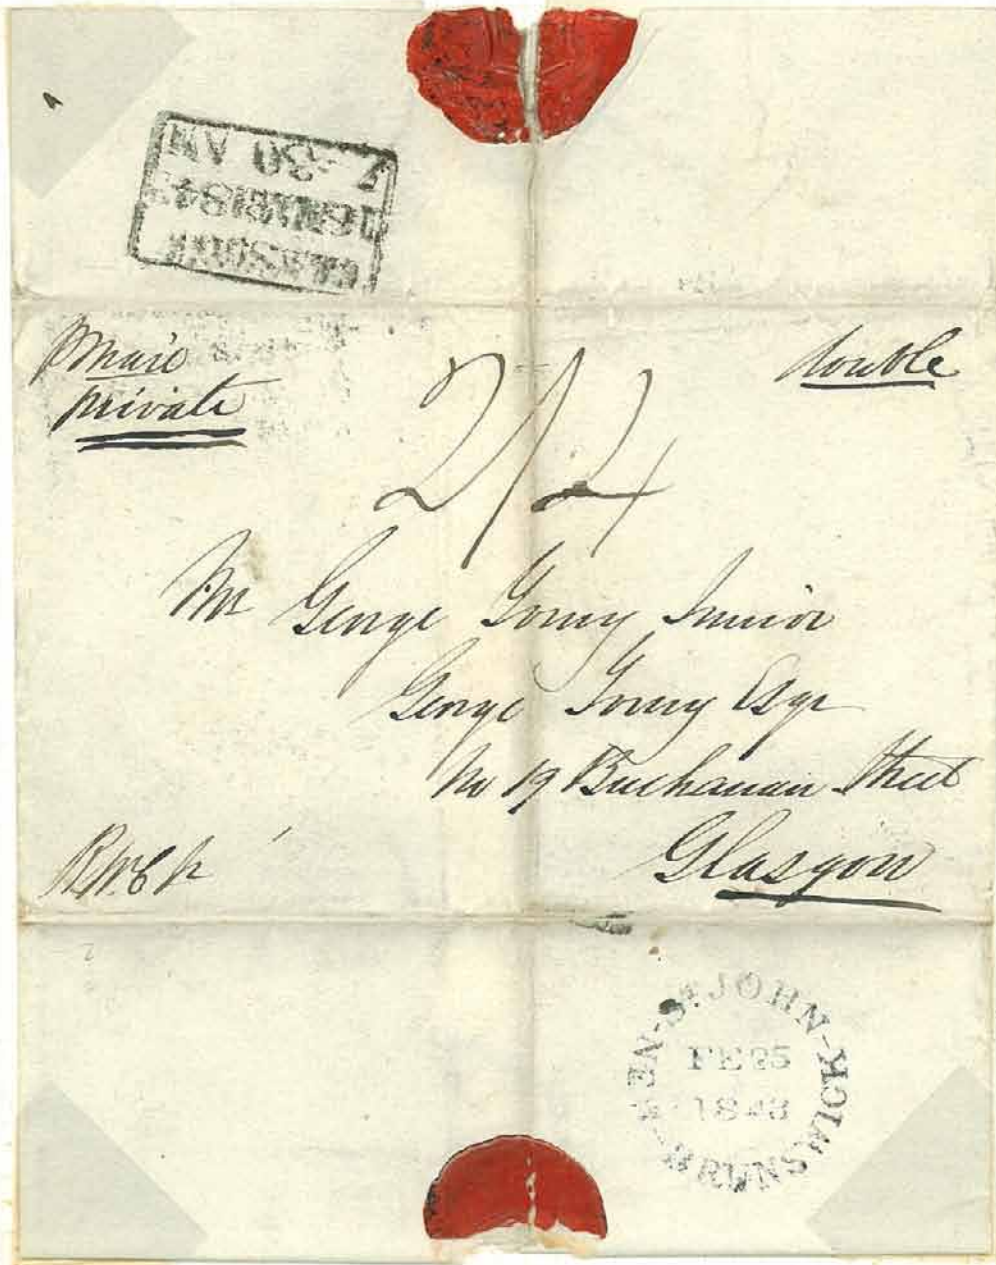 GLASGOW
16 MAR 1843
7-30 AM
private
double
2/4
Mr George Junior
George Esqr
No 19 Buchanan Street
Glasgow
ST JOHN - NEW - BRUNSWICK
FE 25
1843